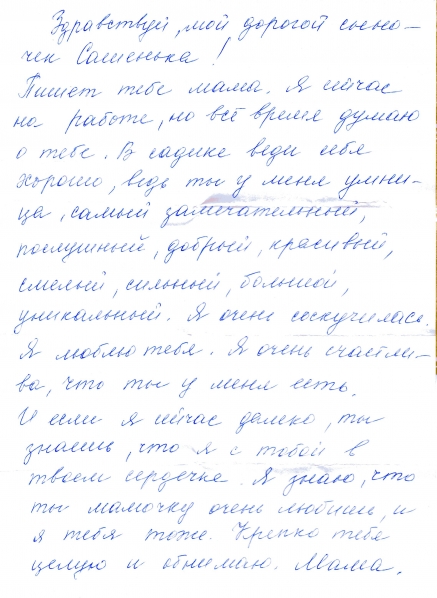 Здравствуй, мой дорогой сыно-
чек Сашенька!
Пишет тебе мама. Я сейчас
на работе, но всё время думаю
о тебе. В садике веди себя
хорошо, ведь ты у меня умни-
ца, самый замечательный,
послушный, добрый, красивый,
смелый, сильный, большой,
уникальный. Я очень соскучилась.
Я люблю тебя. Я очень счастли-
ва, что ты у меня есть.
И если я сейчас далеко, ты
знаешь, что я с тобой в
твоем сердечке. Я знаю, что
ты мамочку очень любишь, и
я тебя тоже. Крепко тебя
целую и обнимаю. Мама.